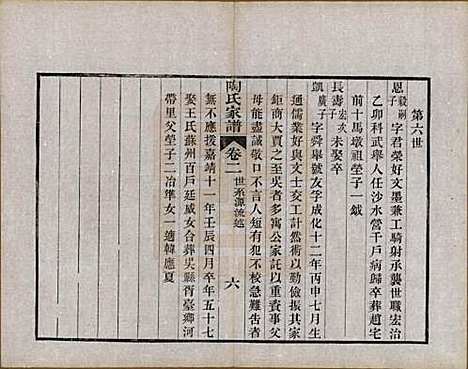 第六世
恩毅嗣子字君榮好文墨兼工騎射承襲世職宏治
乙卯科武舉人任沙水營千戶病歸卒葬趙宅
前十馬墩祖塋子一鉞
長壽宏次子未娶卒
凱廣子字舜舉號友季成化十二年丙申七月生
通儒業好與文士交工計然術以勤儉振其家
鉅商大賈之至吳者多寓公家託以重貲事父
母能盡誠敬口不言人短有犯不校急難告者
無不應援嘉靖十一年壬辰四月卒年五十七
娶王氏蘇州戶廷威女合葬吳縣胥臺鄉河
帶里父塋子二冶準女一適韓應夏
陶氏家譜
卷二
世系源流述
六